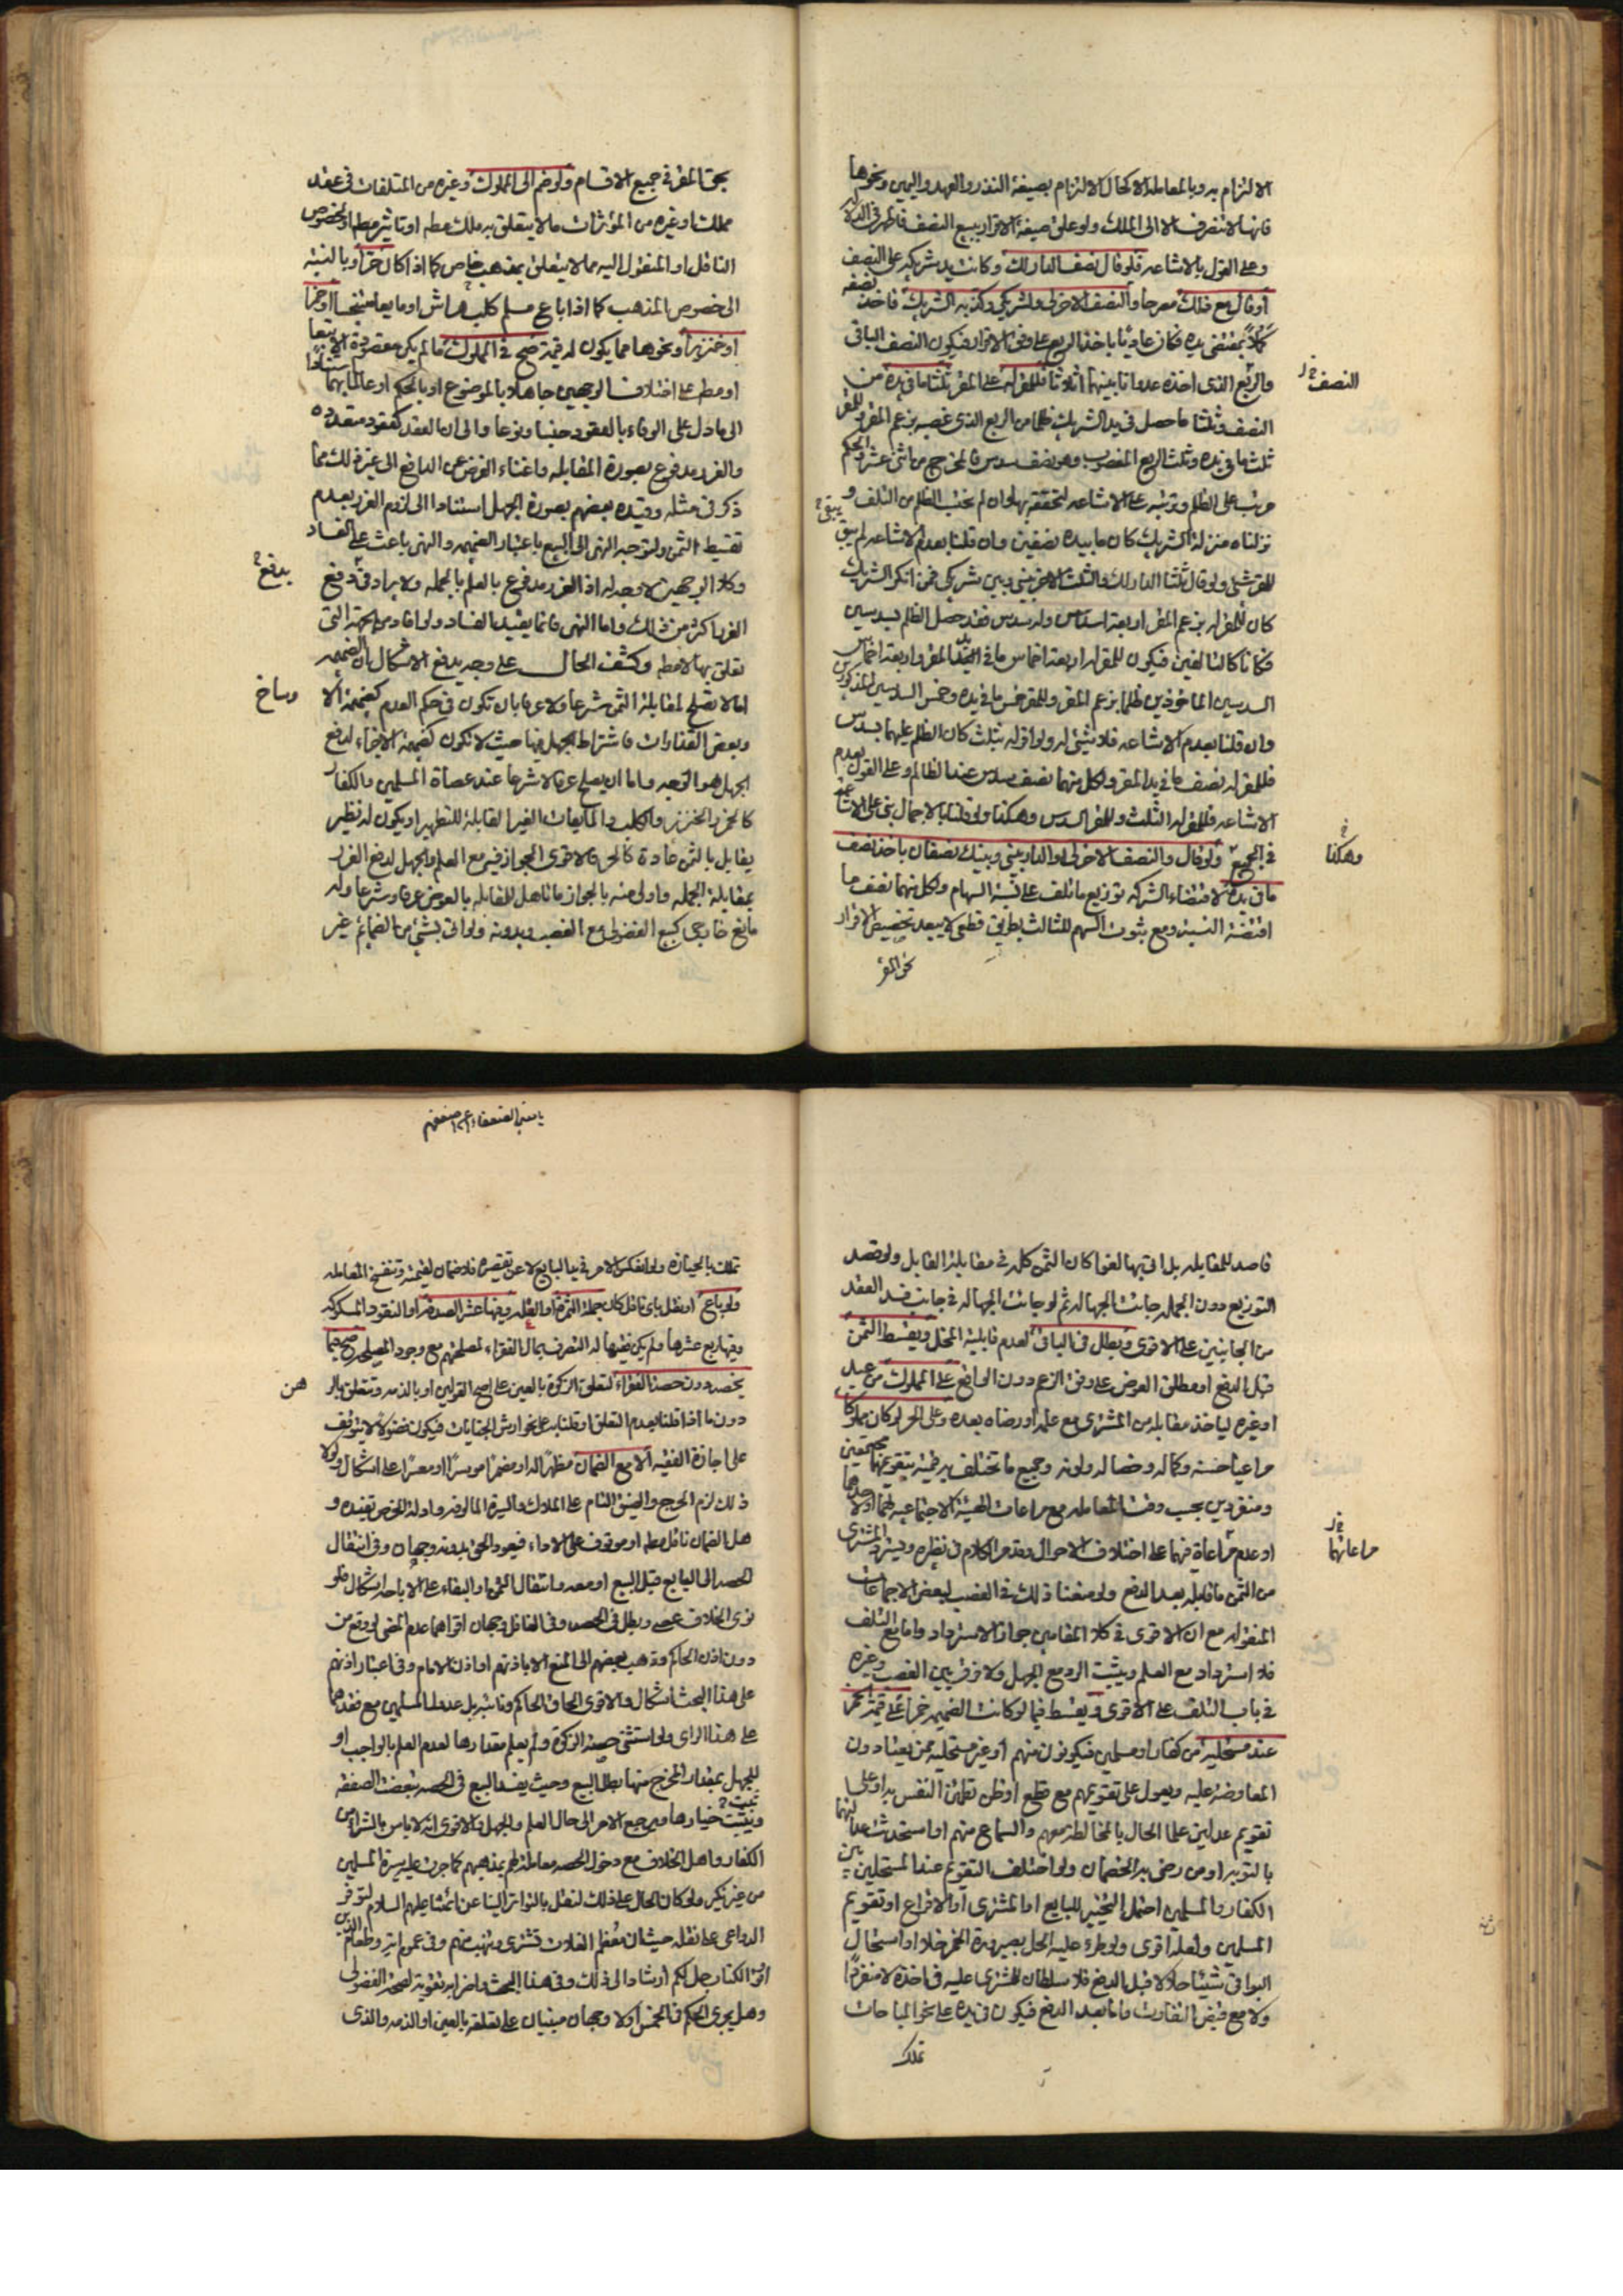 الالتزام به وبالمعاملة لا كحال الالتزام بصيغة النذر والعهد واليمين ونحوها
فانها لا تنصرف الا الى الملك ولو على صيغة الاقرار ببيع النصف فلا
وعلى القول بالاشاعه فلو قال نصف الدار لك وكانت بيد شريكه على النصف
أو قال مع ذلك مصرحا والنصف الاخر لي ولشريكي وكذبه الشريك فاخذ نصفه
بمقتضى يده فكان عاديا باخذ الربع على وفق الاقرار فيكون النصف الباقي
والربع الذي اخذه عدوانا بينهما اثلاثا فللمقر له على المقر ثلثا ما في يده من
النصف
النصف وثلثا ما حصل في يد الشريك ظلما من الربع الذي غصبه بزعم المقر وللمقر
ثلث ما في يده وثلث الربع المغصوب وهو نصف سدس فالمخرج من اثنى عشر والحكم
مرتب على الظلم وترتبه على الاشاعه لتحققه بها وان لم نحتسب الظلم من التلف و
نزلناه منزلة الشريك كان ما بيده نصفين وان قلنا بعدم الاشاعه لم يبق
للمقر شيء ولو قال ثلثا الدار لك والثلث الاخر بيني وبين شريكي فمن انكر الشريك
كان للمقر له بزعم المقر اربعة اسداس وله سدس فقد حصل الظلم بسدسين
فكانا كالتالفين فيكون للمقر له اربعة اخماس ما في يد المقر واربعة اخماس
السدسين الماخوذين ظلما بزعم المقر وللمقر خمس ما في يده وخمس السدسين المذكورين
وان قلنا بعدم الاشاعه فلا شيء له ولو اقر له بثلث كان الظلم عليهما بسدس
فللمقر له نصف ما في يد المقر ولكل منهما نصف سدس عند الظالم وعلى القول بعدم
الاشاعه فللمقر له الثلث وللمقر السدس وهكذا ولو قلنا بالاجمال بنى على الاشاعه
وهكذا
في الجميع ولو قال والنصف الاخر لي او الدار بيني وبينك نصفان ياخذ نصف
ما في يده لاقتضاء الشركه توزيع ما تلف على نسبة السهام ولكل منهما نصف ما
اقتضته النسبة ومع ثبوت السهم للثالث بطريق قطعي لا يبعد تخصيص الاقرار
نحو المقر
بحق المقر في جميع الاقسام ولو ضم الى المملوك وغيره من المتلفات في عقد
مملك او غيره من المؤثرات ما لا يتعلق به ملك مطلقا او تاثير مطلقا او لخصوص
الناقل او المنقول اليه مما لا يتعلق بمذهب خاص كما اذا كان حرا وبالنسبة
الى خصوص المذهب كما اذا باع مسلم كلب هراش او مايعا متنجسا او خمرا
او خنزيرا ونحوها مما يكون له قيمة صح في المملوك ما لم يكن مقصودا الا تبعا
او مطلقا على اختلاف الوجهين جاهلا بالموضوع او بالحكم او عالما بهما استنادا
الى ما دل على الوفاء بالعقود جنسا ونوعا والى ان العقد كعقود متعدده
والغرر مدفوع بصورة المقابله واغناء الفرض عن الدافع الى غير ذلك مما
ذكر في مثله وقيده بعضهم بصورة الجهل استنادا الى لزوم الغرر بعدم
تقسيط الثمن ولتوجه النهى الى البيع باعتبار الضميمه والنهى باعث على الفساد
وكلا الوجهين لا وجه له اذ الغرر مدفوع بالعلم بالجمله ولا يراد في دفع
يدفع
الغرر اكثر من ذلك واما النهى فانما يفيد الفساد ولو افاد من الجهة التى
تعلق بها لا مطلقا وكشف الحال على وجه يدفع الاشكال ان الضميمه
اما لا تصلح لمقابلة الثمن شرعا ولا عرفا بان تكون في حكم العدم كضميمة الا
وساخ
وبعض القذارات فاشتراط الجهل فيها حيث لا تكون كضميمة الاجزاء لدفع
الجهل هو الوجه واما ان يصلح عرفا لا شرعا عند عصاة المسلمين والكفار
كالخمر والخنزير والكلب والمايعات الغير القابلة للتطهير او يكون له نظير
يقابل بالثمن عادة كالحر فالاقوى الجواز فيه مع العلم والجهل لدفع الغرر
بمقابلة الجمله واولى منه بالجواز ما تاهل للمقابله بالعوض عرفا وشرعا وله
مانع خارجي كبيع الفضولي مع الغصب وبدونه ولو اتى بشئ من الضمائم غير
يا منير الضعفاء ارحم ضعفهم
قاصد للمقابله بل اتى بها لغوا كان الثمن كله في مقابلة القابل ولو قصد
التوزيع دون الجمله جائت الجهاله ثم لو جائت الجهاله في جانب فسد العقد
من الجانبين على الاقوى ويبطل في الباقي لعدم قابلية المحل ويقسط الثمن
قبل الدفع او مطلق العوض على وفق الزعم دون الواقع على المملوك من عبد
او غيره لياخذ مقابله من المشتري مع علمه او رضاه بعده وعلى الحر لو كان مملوكا
مراعيا حسنه وكماله وخصاله ولونه وجميع ما تختلف به قيمته بتقويمهما مجتمعين
ومنفردين بحسب وقت المعامله مع مراعات الهيئة الاجتماعيه لهما او لاحدهما
او عدم مراعاة فيهما على اختلاف الاحوال وتقدم الكلام في نظيره ويسترد المشترى
مراعاتهما
من الثمن ما قابله بعد الدفع ولو منعنا ذلك في الغصب لبعض الاجماعات
المنقوله مع ان الاقوى في كلا المقامين جواز الاسترداد واما مع التلف
فلا استرداد مع العلم ويثبت الرد مع الجهل ولا فرق بين الغصب وغيره
في باب التلف على الاقوى ويقسط فيما لو كانت الضميمه خمرا على قيمة الخمر
عند مستحليه من كفار او مسلمين فيكونون منهم او غير مستحليه ممن يعتادون
المعاوضة عليه ويعول على تقويمهم مع قطع او ظن تطمئن النفس به او على
تقويم عدلين علما الحال بالمخالطة معهم والسماع منهم او استحدثت عدالتهما
بالتوبه او من رضى به الخصمان ولو اختلف التقويم عند المستحلين بين
الكفار والمسلمين احتمل التخيير للبايع او المشترى او الاقراع او تقويم
المسلمين ولعله اقوى ولو طرء عليه الحل بصيرورة الخمر خلا او استحال
البواقي شيئا حلالا قبل الدفع فلا سلطان للمشترى عليه في اخذه لا منفردا
ولا مع قبض التفاوت واما بعد الدفع فيكون في يده على نحو المباحات
تملك
تملك بالحيازة ولو انعكس الامر في يد البايع لا عن تقصير فلا ضمان لقيمته وتنفسخ المعامله
ولو باع او نقل باى ناقل كان جملة الثمرة او الغله وفيها عشر الصدقه او النقود المسكوكه
وفيها ربع عشرها ولم يكن فقيها له التصرف بمال الفقراء لمصلحتهم مع وجود المصلحه صح فيما
يخصه دون حصة الفقراء لتعلق الزكوة بالعين على اصح القولين او بالذمه وتتعلق بالر
هن
دون ما اذا قلنا بعدم التعلق او قلنا به على نحو ارش الجنايات فيكون فضولا لا يتوقف
على اجازة الفقيه الا مع الضمان مظهرا له او مضمرا موسرا او معسرا على اشكال ولولا
ذلك لزم الحرج والضيق التام على الملاك والسيرة المالوفه وادلة الخرص تفيده و
هل الضمان ناقل مطلقا او موقوف على الاداء فيعود الحق بدونه وجهان وفي انتقال
الحصه الى البايع قبل البيع او معه وانتقال الثمن او البقاء على الاباحه اشكال فلو
نوى الخلاف عصى وبطل في الحصه وفي الغافل وجهان اقواهما عدم المضى لو وقع من
دون اذن الحاكم وذهب بعضهم الى المنع الا باذنهم او اذن الامام وفي اعتبار اذنهم
على هذا البحث اشكال والاقوى الحاق الحاكم ونائبه بل عدول المسلمين مع فقدهما
على هذا الراى ولو استثنى حصة الزكوة ولم يعلم مقدارها لعدم العلم بالواجب او
للجهل بمقدار المخرج منها بطل البيع وحيث يفسد البيع في الحصه تبعضت الصفقه
ويثبت خيارها ويرجع الامر الى حال العلم والجهل والاقوى انه لا باس بالشراء من
الكفار واهل الخلاف مع دخول الحصه معاملة لهم بمذهبهم كما جرت عليه سيرة المسلمين
من غير نكير ولو كان الحال على ذلك لنقل بالتواتر الينا عن ائمتنا عليهم السلام لتوفر
الدواعى على نقله حيث ان معظم الغلات تشترى وتتهب منهم وفي عموم اية وطعام الذين
اوتوا الكتاب حل لكم ارشاد الى ذلك وفي هذا البحث واضرابه تقوية لصحة الفضولى
وهل يجرى الحكم في الخمس اولا وجهان مبنيان على تعلقه بالعين او الذمه والذى